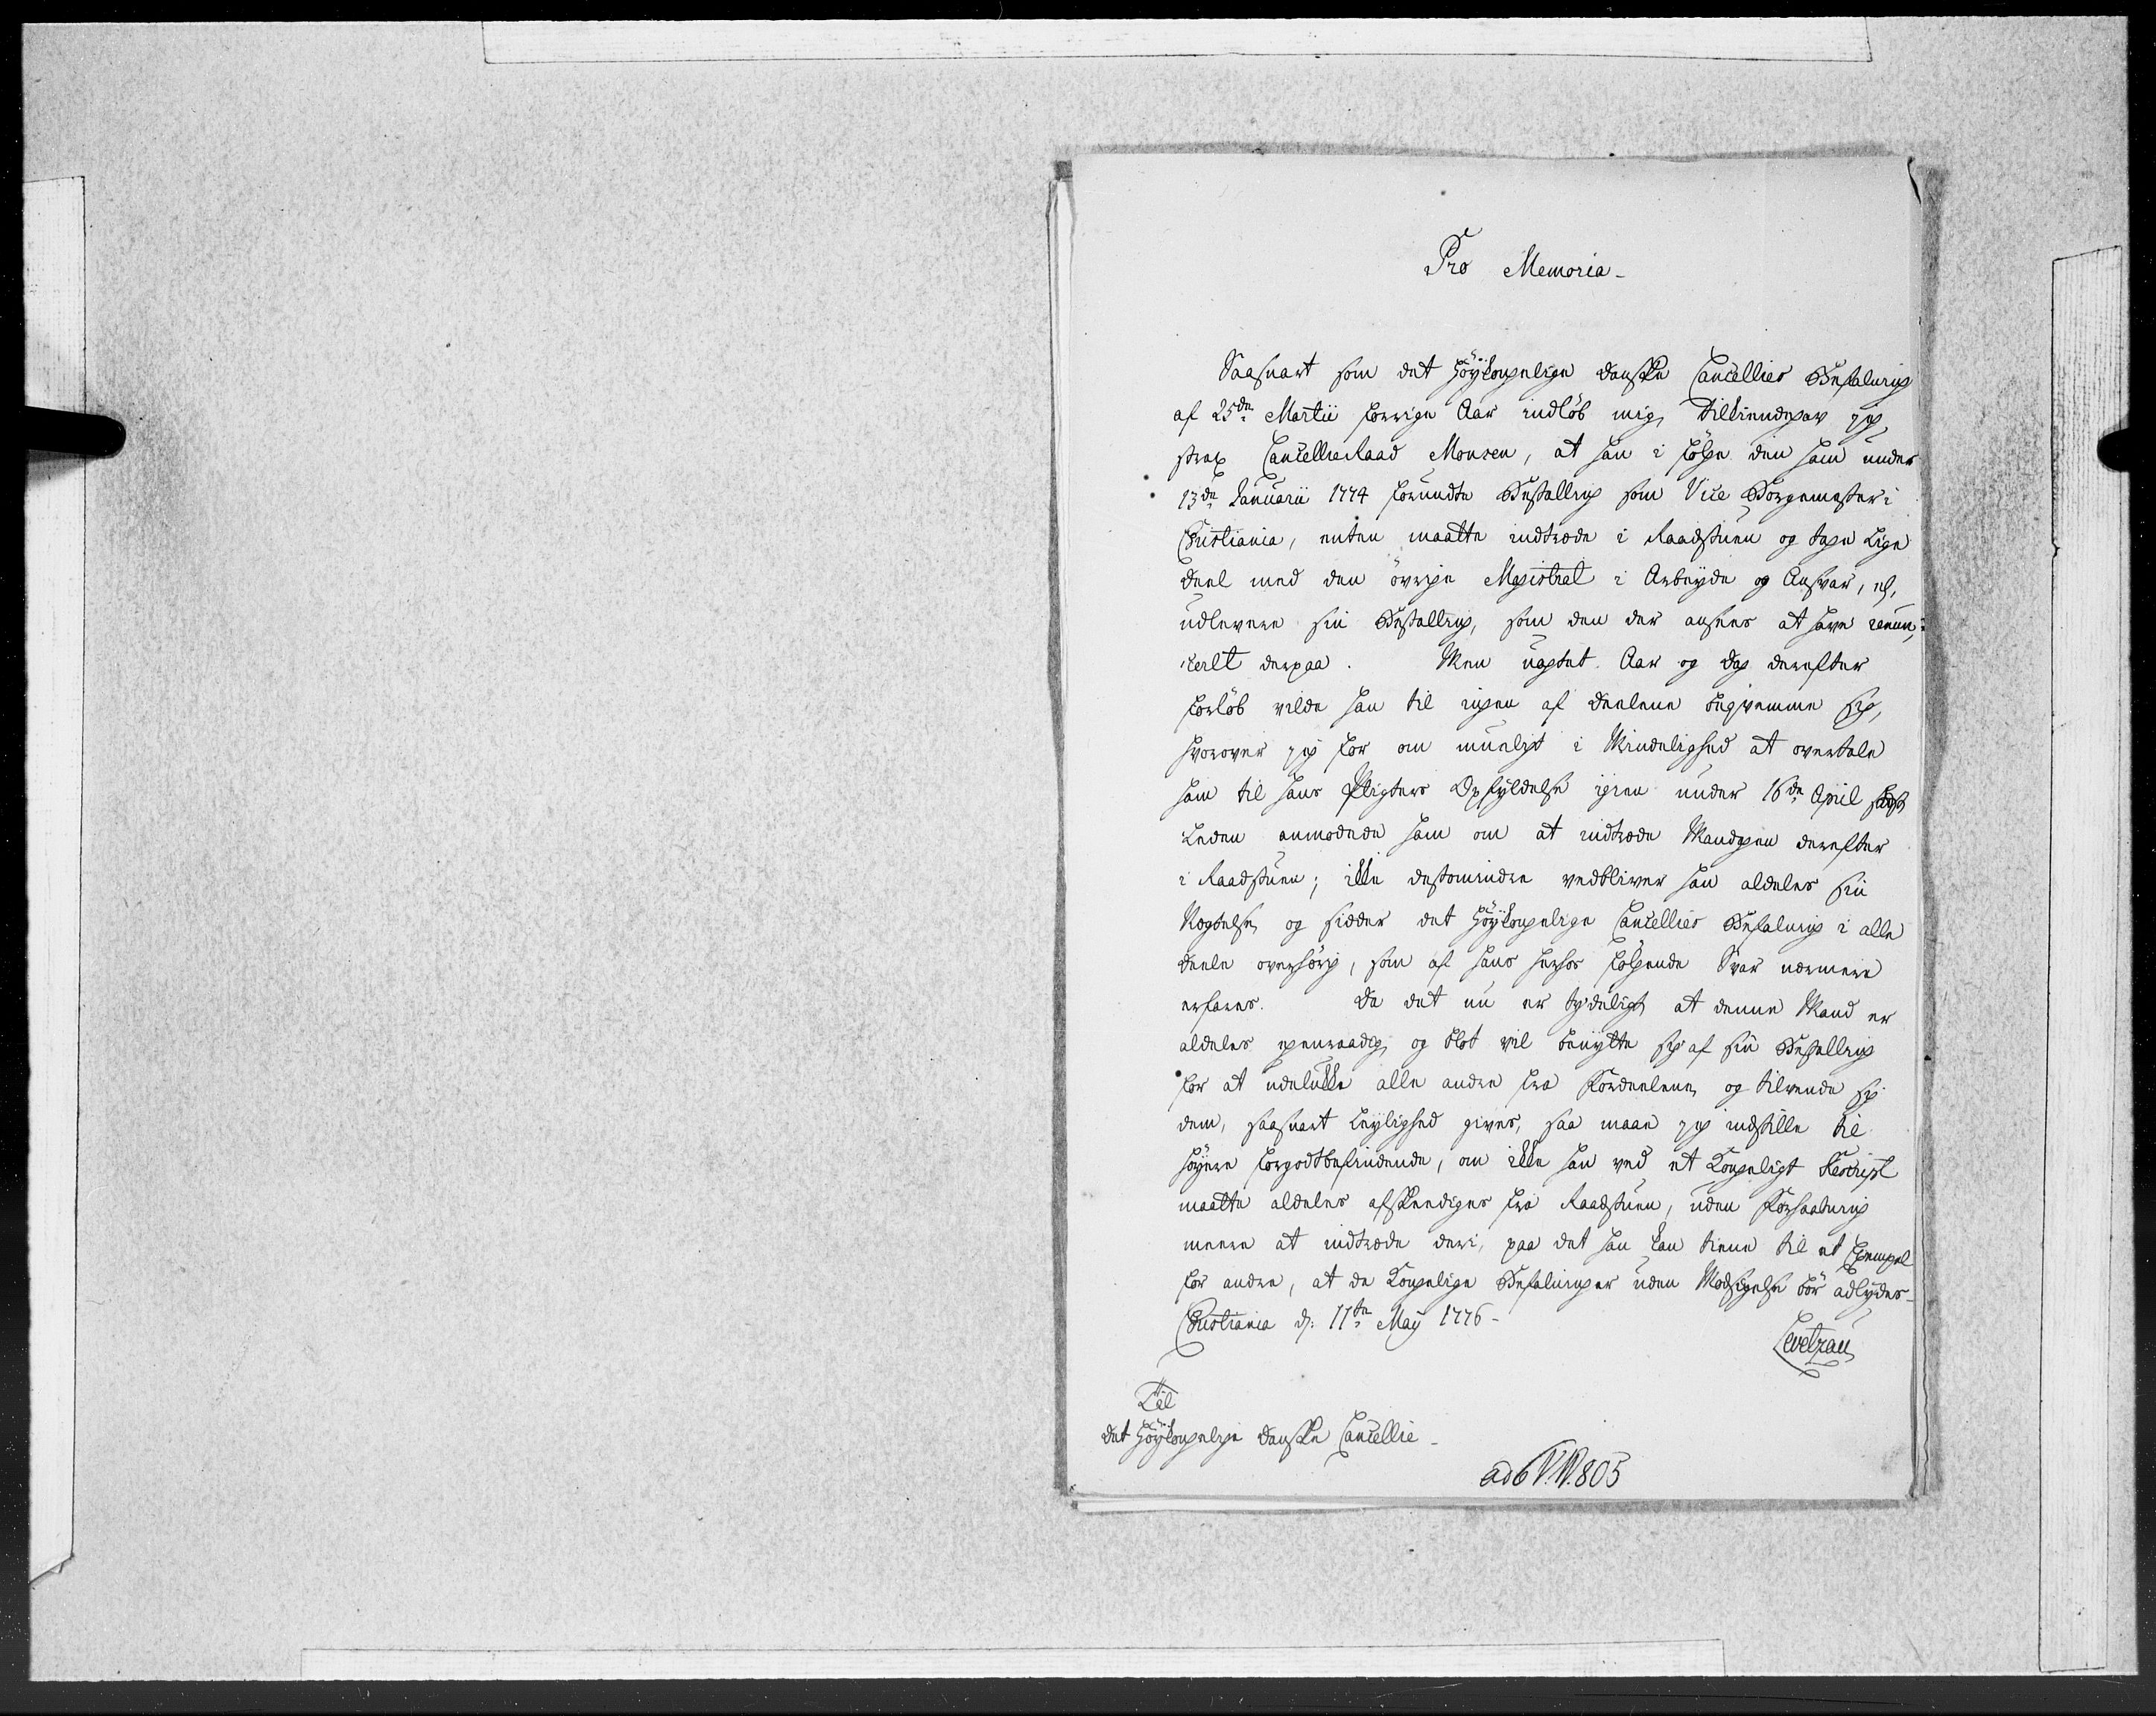 Pro Memoria-
Saasnart som det Höykongelige danske Cancellies Befalning
af 25de Martii forrige Aar indløb mig, tilkiendegav jeg
strax CancellieRaad Monsen, at han i følge den ham under
13de Januarii 1774 forundte Bestalling som Vice Borgemester i
Christiania, enten maatte indtræde i Raadstuen og tage Lige
deel med den övrige Magistrat i Arbeyde og Ansvar, eller
udlevere sin Bestalling, som den der ansees at have renun-
ceret derpaa. Men uagtet Aar og dag derefter
forløb vilde han til ingen af deelene beqvemme sig,
hvorover jeg for om mueligt i Mindelighed at overtale
ham til hans Pligters Opfyldelse igien under 16de April sidst
Leden anmodede ham om at indtræde Mandagen derefter
i Raadstuen; ikke destomindre vedbliver han aldeles sin
Nægtelse, og sidder det Höykongelige Cancellies Befalning i alle
deele overhörig, som af hans herhos følgende Svar nærmere
erfares. Da det nu er tydeligt, at denne Mand er
aldeles egenraadig, og blot vil benytte sig af sin Bestalling
for at udelukke alle andre fra Fordeelene, og tilvende sig
dem, saasnart Leylighed gives, saa maae jeg indstille til
höyere forgodtbefindende, om ikke han ved et Kongeligt Rescript
maatte aldeles afskeediges fra Raadstuen, uden Forhaabning
meere at indtræde deri, paa det han kan tiene til et Exempel
for andre, at de Kongelige Befalninger uden Modsigelse bör adlydes-
Christiania d: 11te May 1776-
Levetzau
Til
det Höykongelige danske Cancellie-
ad 6 V. N. 805